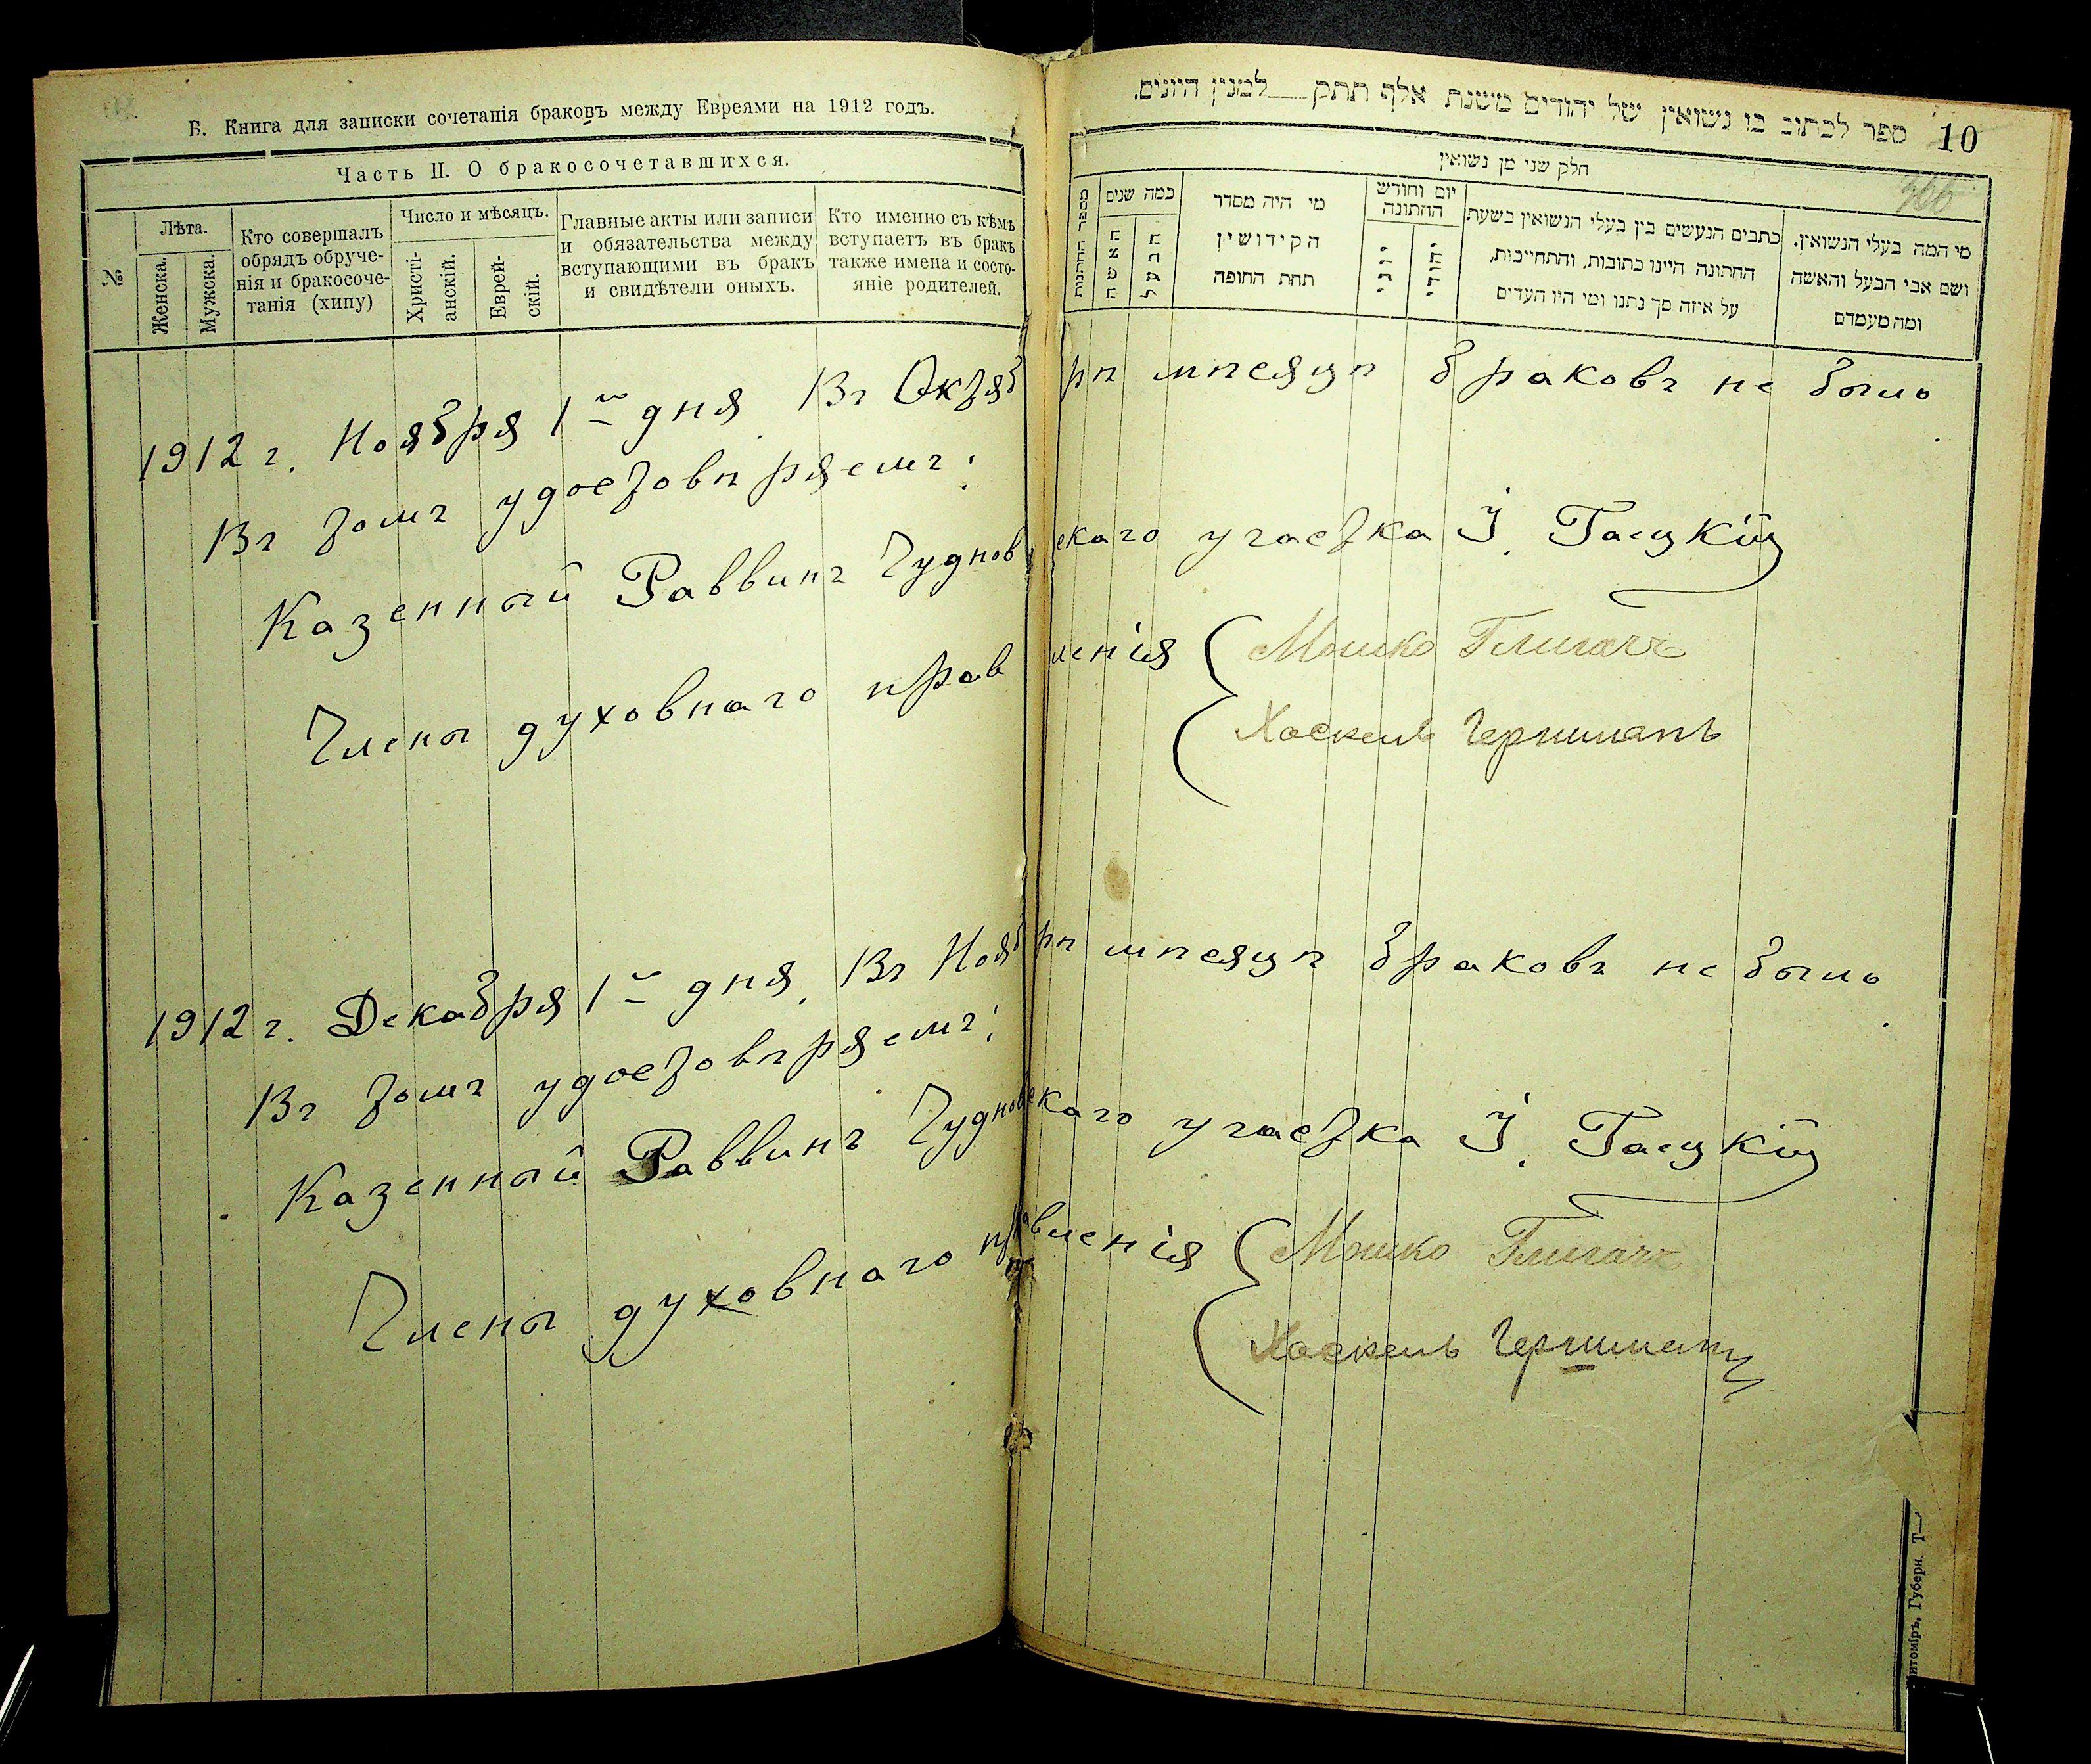 Б. Книга для записки сочетанія браковъ между Евреями на 1912 годъ.
Часть II. О бракосочетавшихся.
№
Лѣта.
Женска.
Мужска.
Кто совершалъ
обрядъ обруче-
нія и бракосоче-
танія (хипу)
Число и мѣсяцъ.
Христі-
анскій.
Еврей-
скій.
Главные акты или записи
и обязательства между
вступающими въ бракъ
и свидѣтели оныхъ.
Кто именно съ кѣмъ
вступаетъ въ бракъ
также имена и состо-
яніе родителей.
ספר לכתוב בו נשואין של יהודים משנת אלף תתק___למנין היונים.
10
חלק שני מן נשואין
מספר החתונות
כמה שנים
האשה
הבעל
מי היה מסדר
הקידושין
תחת החופה
יום וחודש
החתונה
יוני
יהודי
כתבים הנעשים בין בעלי הנשואין בשעת
החתונה היינו כתובות, והתחייבות,
על איזה סך נתנו ומי היו העדים
מי המה בעלי הנשואין.
ושם אבי הבעל והאשה
ומה מעמדם
1912 г. Ноября 1го дня. Въ Октябрѣ мѣсяцѣ браковъ не было.
Въ томъ удостовѣряемъ:
Казенный Раввинъ Чудновскаго участка І. Гацкій
Члены духовнаго правленія
Мошко Глигачъ
Хаскель Герншанъ
1912 г. Декабря 1го дня. Въ Ноябрѣ мѣсяцѣ браковъ не было.
Въ томъ удостовѣряемъ:
Казенный Раввинъ Чудновскаго участка І. Гацкій
Члены духовнаго правленія
Мошко Глигачъ
Хаскель
итоміръ, Губерн. Т